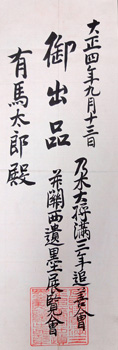 大正四年九月十三日
乃木大将満三年追善會
并關西遺墨展覽會
御出品
有馬太郎殿